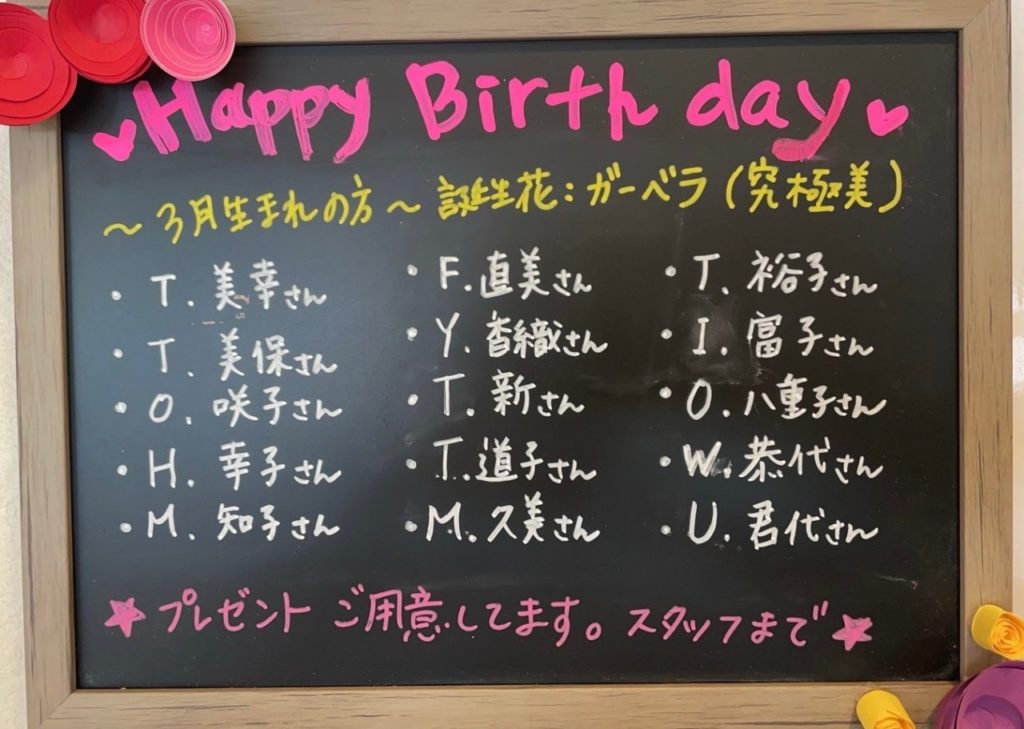 ♥Happy Birth day♥
～3月生まれの方～ 誕生花：ガーベラ（究極美）
・T. 美幸さん ・F. 直美さん ・T. 裕子さん
・T. 美保さん ・Y. 香織さん ・I. 富子さん
・O. 咲子さん ・T. 新さん ・O. 八重子さん
・H. 幸子さん ・T. 道子さん ・W. 恭代さん
・M. 知子さん ・M. 久美さん ・U. 君代さん
★プレゼント ご用意してます。スタッフまで★